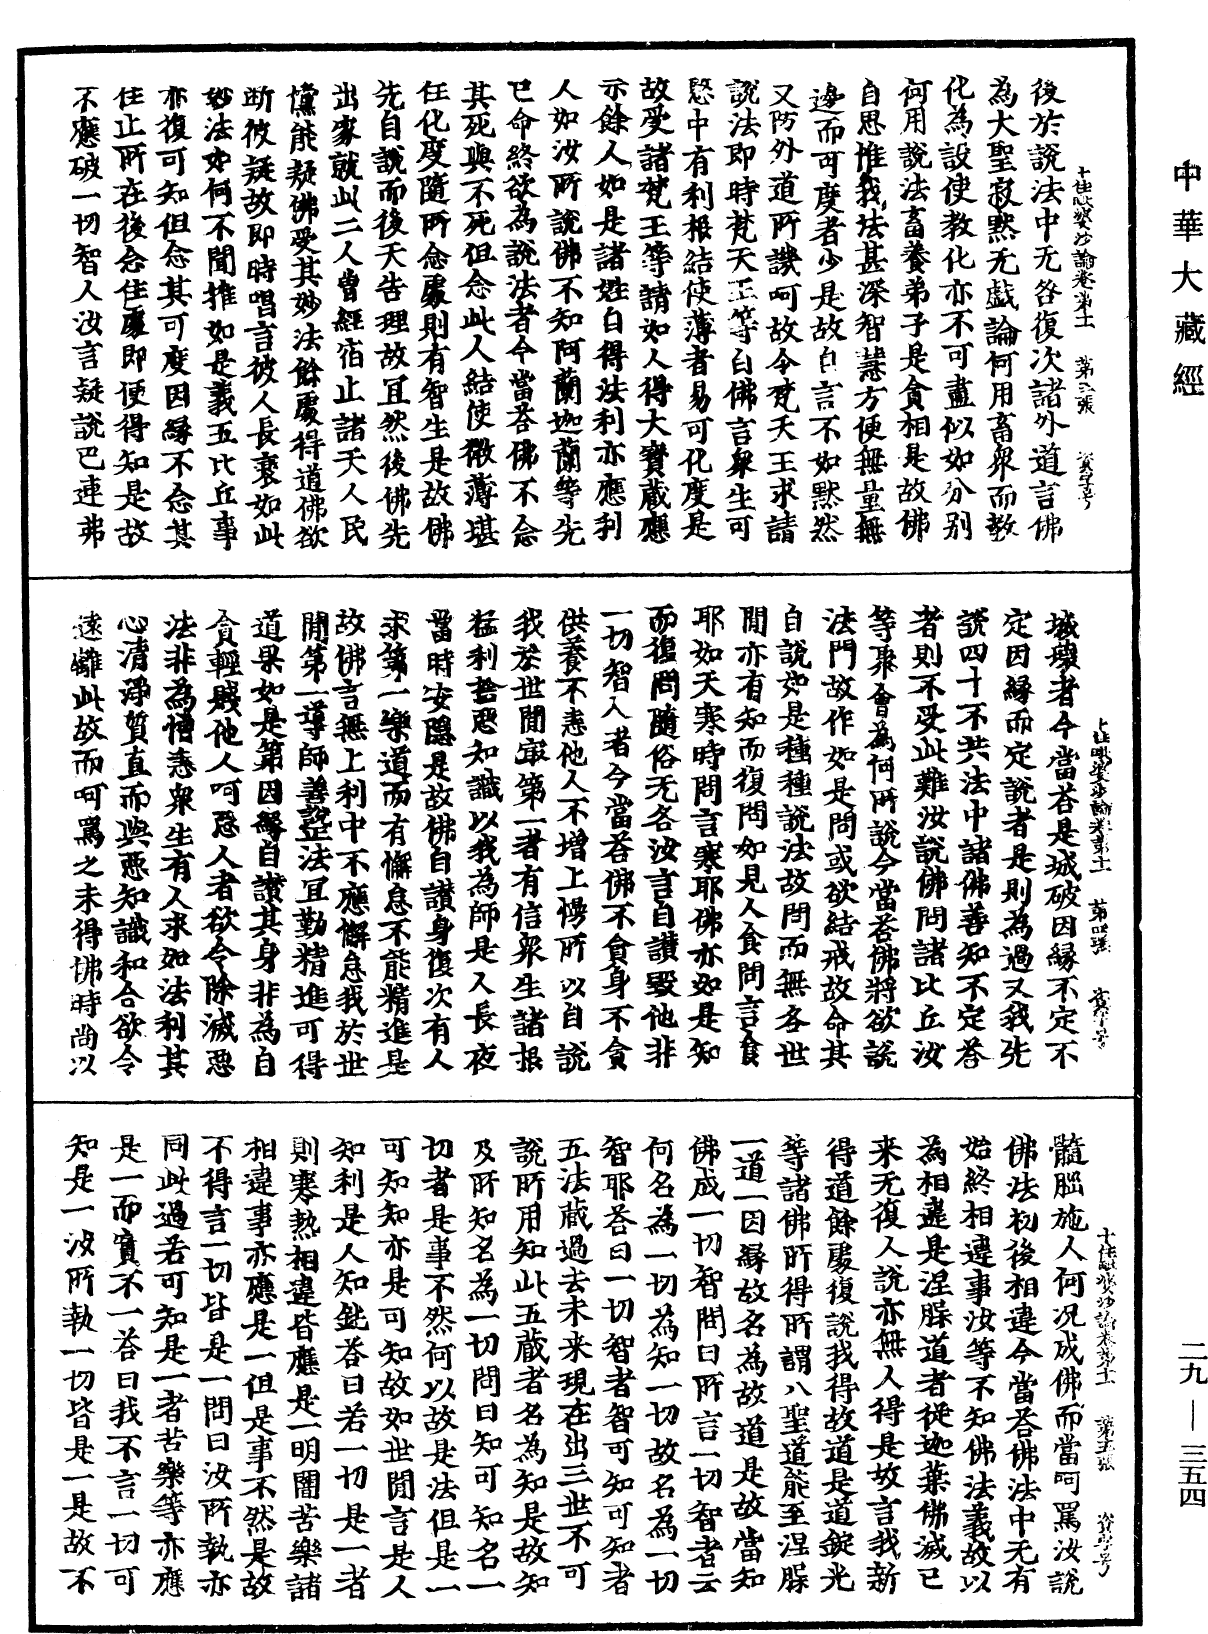 中華大藏經
二九—三五四
十住毗婆沙論卷第十一 第三張 資字号
後於說法中无咎復次諸外道言佛
為大聖寂黙无戲論何用畜衆而教
化為設使教化亦不可盡似如分別
何用說法畜養弟子是貪相是故佛
自思惟我法甚深智慧方便無量無
邊而可度者少是故自言不如黙然
又防外道所譏呵故令梵天王求請
說法即時梵天王等白佛言衆生可
愍中有利根結使薄者易可化度是
故受諸梵王等請如人得大寶藏應
示餘人如是諸姓自得法利亦應利
人如汝所說佛不知阿蘭迦蘭等先
已命終欲為說法者今當荅佛不念
其死與不死但念此人結使微薄堪
任化度隨所念處則有智生是故佛
先自說而後天告理故冝然後佛先
出家就此二人曾經宿止諸天人民
儻能疑佛受其妙法餘處得道佛欲
斷彼疑故即時唱言彼人長衰如此
妙法如何不聞推如是義五比丘事
亦復可知但念其可度因緣不念其
住止所在後念住處即便得知是故
不應破一切智人汝言疑說巴連弗
十住毗婆沙論卷第十一 第四張 資字号
城壞者今當荅是城破因緣不定不
定因緣而定說者是則為過又我先
說四十不共法中諸佛善知不定荅
者則不受此難汝說佛問諸比丘汝
等聚會為何所說今當荅佛將欲說
法門故作如是問或欲結戒故命其
自說如是種種說法故問而無各世
間亦有知而復問如見人食問言食
耶如天寒時問言寒耶佛亦如是知
而復問隨俗无各汝言自讚毀他非
一切智人者今當荅佛不貪身不貪
供養不恚他人不增上慢所以自說
我於世間㝡第一者有信衆生諸根
猛利捨惡知識以我為師是人長夜
當時安隱是故佛自讚身復次有人
求第一樂道而有懈怠不能精進是
故佛言無上利中不應懈怠我於世
間第一導師善說正法冝勤精進可得
道果如是第因緣自讚其身非為自
貪輕賤他人呵惡人者欲令除滅惡
法非為憎恚衆生有人求如法利其
心清淨質直而與惡知識和合欲令
遠離此故而呵罵之未得佛時尚以
十住毗婆沙論卷第十一 第五張 資字号
髓腦施人何況成佛而當呵罵汝說
佛法初後相違今當荅佛法中无有
始終相違事汝等不知佛法義故以
為相違是涅槃道者從迦葉佛滅已
来无復人說亦無人得是故言我新
得道餘處復說我得故道是道錠光
等諸佛所得所謂八聖道能至涅槃
一道一因緣故名為故道是故當知
佛成一切智問曰所言一切智者云
何名為一切為知一切故名為一切
智耶荅曰一切智者智可知可知者
五法藏過去未来現在出三世不可
說所用知此五藏者名為知是故知
及所知名為一切問曰知可知名一
切者是事不然何以故是法但是一
可知知亦是可知故如世間言是人
知利是人知鈍荅曰若一切是一者
則寒熱相違皆應是一明闇苦樂諸
相違事亦應是一但是事不然是故
不得言一切皆是一問曰汝所執亦
同此過若可知是一者苦樂等亦應
是一而實不一荅曰我不言一切可
知是一汝所執一切皆是一是故不